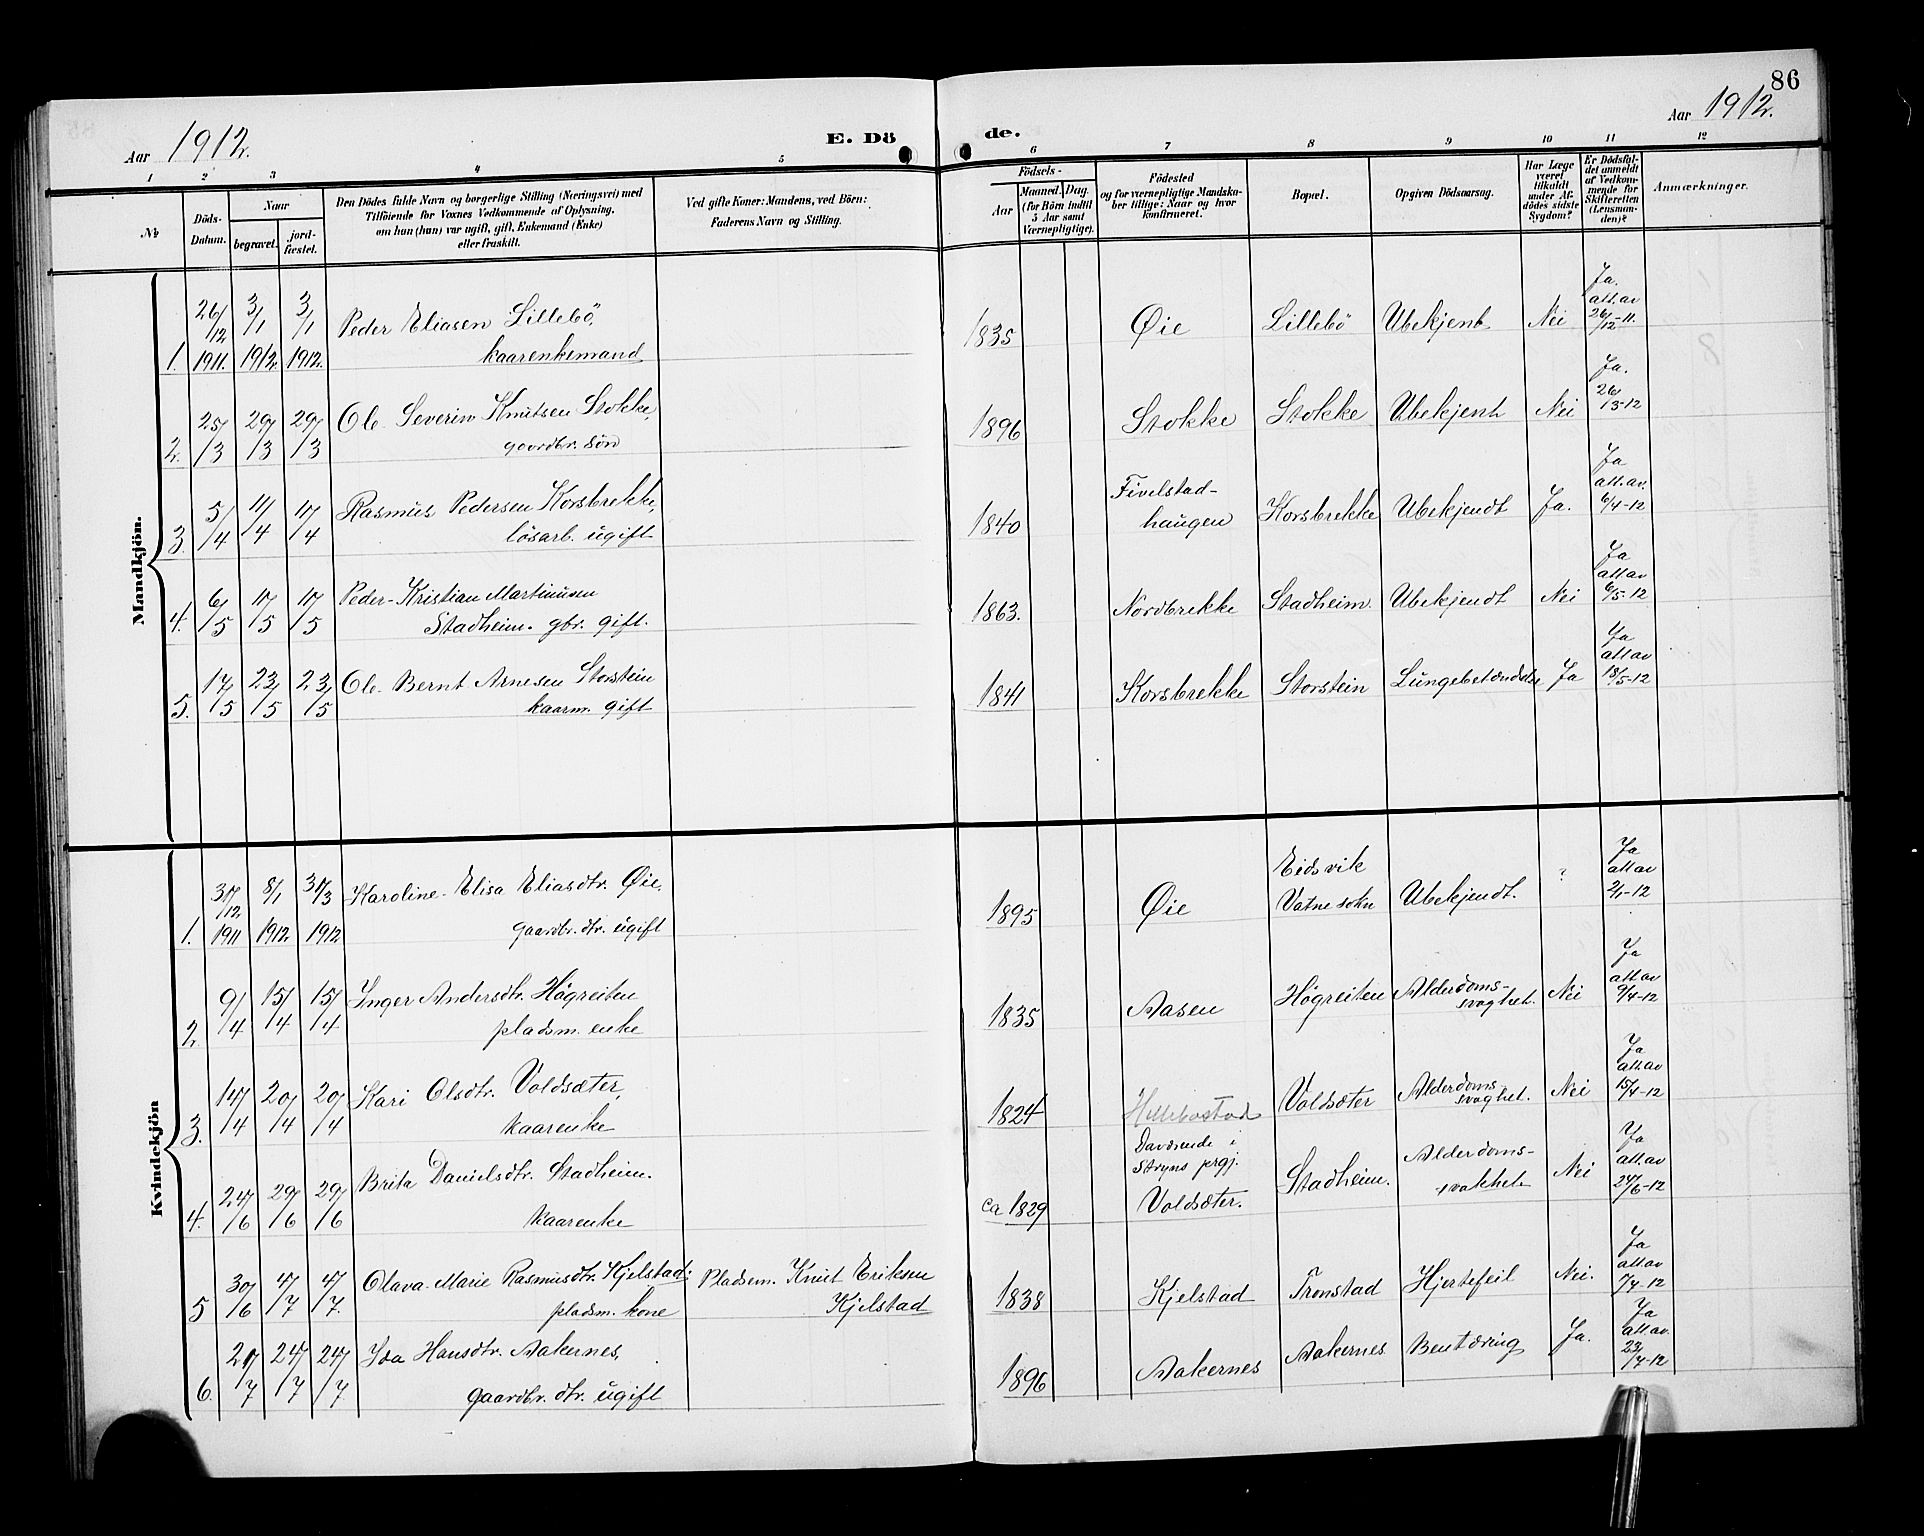 86
Aar 1912.
E. Dö
de.
Aar 1912.
1 2 3 4 5 6 7 8 9 10 11 12
№
Döds-
Datum.
Naar
begravet.
jord-
fæstet.
Den Dödes fulde Navn og borgerlige Stilling (Næringsvei) med
Tilföiende for Voxnes Vedkommende af Oplysning,
om han (hun) var ugift, gift, Enkemand (Enke)
eller fraskilt.
Ved gifte Koner: Mandens, ved Börn:
Faderens Navn og Stilling.
Födsels-
Aar
Maaned. Dag.
(for Börn indtil
5 Aar samt
Værnepligtige).
Födested
og for værnepligtige Mandska-
ber tillige: Naar og hvor
konfirmeret.
Bopæl.
Opgiven Dödsaarsag.
Har Læge
været
tilkaldt
under Af-
dödes sidste
Sygdom?
Er Dödsfal-
det anmeldt
af Vedkom-
mende for
Skifteretten
(Lensman-
den)?
Anmærkninger.
Mandkjön.
1. 26/12 1911. 3/1 1912. 3/1 1912. Peder Eliasen Lillebö,
kaarenkemand
1835 Øie Lillebö Ubekjent Nei Ja.
att. av
26/12-11.
2. 25/3 29/3 29/3 Ole Severin Knutsen Stokke,
gaardbr. sön
1896 Stokke Stokke Ubekjent Nei Ja.
26/3-12
3. 5/4 11/4 11/4 Rasmus Pedersen Korsbrekke,
lösarb. ugift
1840 Fivelstad-
haugen Korsbrekke Ubekjendt Ja. Ja
att. av.
6/4-12
4. 6/5 11/5 11/5 Peder Kristian Martinusen
Stadheim. gbr. gift.
1863. Nordbrekke Stadheim. Ubekjendt Nei Ja
att. av
6/5-12
5. 17/5 23/5 23/5 Ole Bernt Arnesen Storstein
kaarm. gift
1841 Korsbrekke Storstein Lungebetændelse Ja Ja
att av
18/5-12
Kvindekjön
1. 31/12 1911 8/1 1912 31/3 1912 Karoline Elisa Eliasdtr. Øie,
gaardbr. dtr. ugift
1895 Øie Eidsvik
Vatne sokn Ubekjendt. ? Ja
att av
2/1-12
2. 9/4 15/4 15/4 Inger Andersdtr. Högreiten
pladsm. enke
1835 Aasen Högreiten Alderdoms-
svaghet. Nei Ja
att. av
9/4-12
3. 14/4 20/4 20/4 Kari Olsdtr. Voldsæter,
kaarenke
1824 Hellebostad Voldsæter Alderdoms-
svaghet. Nei Ja
att. av
15/4-12
4. 24/6 29/6 29/6 Brita Danielsdtr. Stadheim.
kaarenke
ca 1829 Daværende i
Stryns prgj.
Voldsæter. Stadheim. Alderdoms-
svakhet Nei Ja
att. av
24/6-12
5 30/6 4/7 4/7. Olava Marie Rasmusdtr. Kjelstad;
pladsm. kone
Pladsem. Knut Eriksen
Kjelstad
1838 Kjelstad Tronstad Hjertefeil Nei. Ja
att av
1/7-12
6. 21/7 24/7 24/7 Ida Hansdtr. Aakernes,
gaardbr. dtr. ugift
1896 Aakernes Aakernes Bentæring Ja. Ja
att. av.
23/7-12